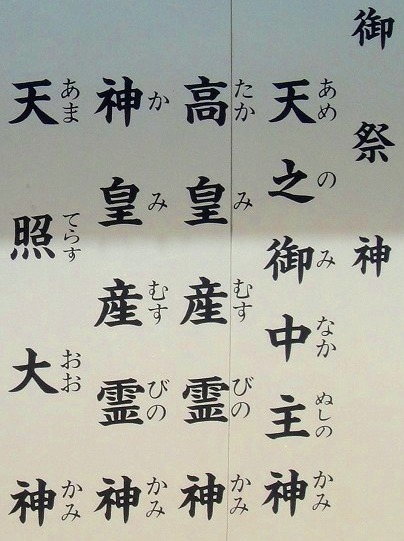 御祭神
天之御中主神
あめのみなかぬしのかみ
高皇産霊神
たかみむすびのかみ
神皇産霊神
かみむすびのかみ
天照大神
あまてらすおおかみ